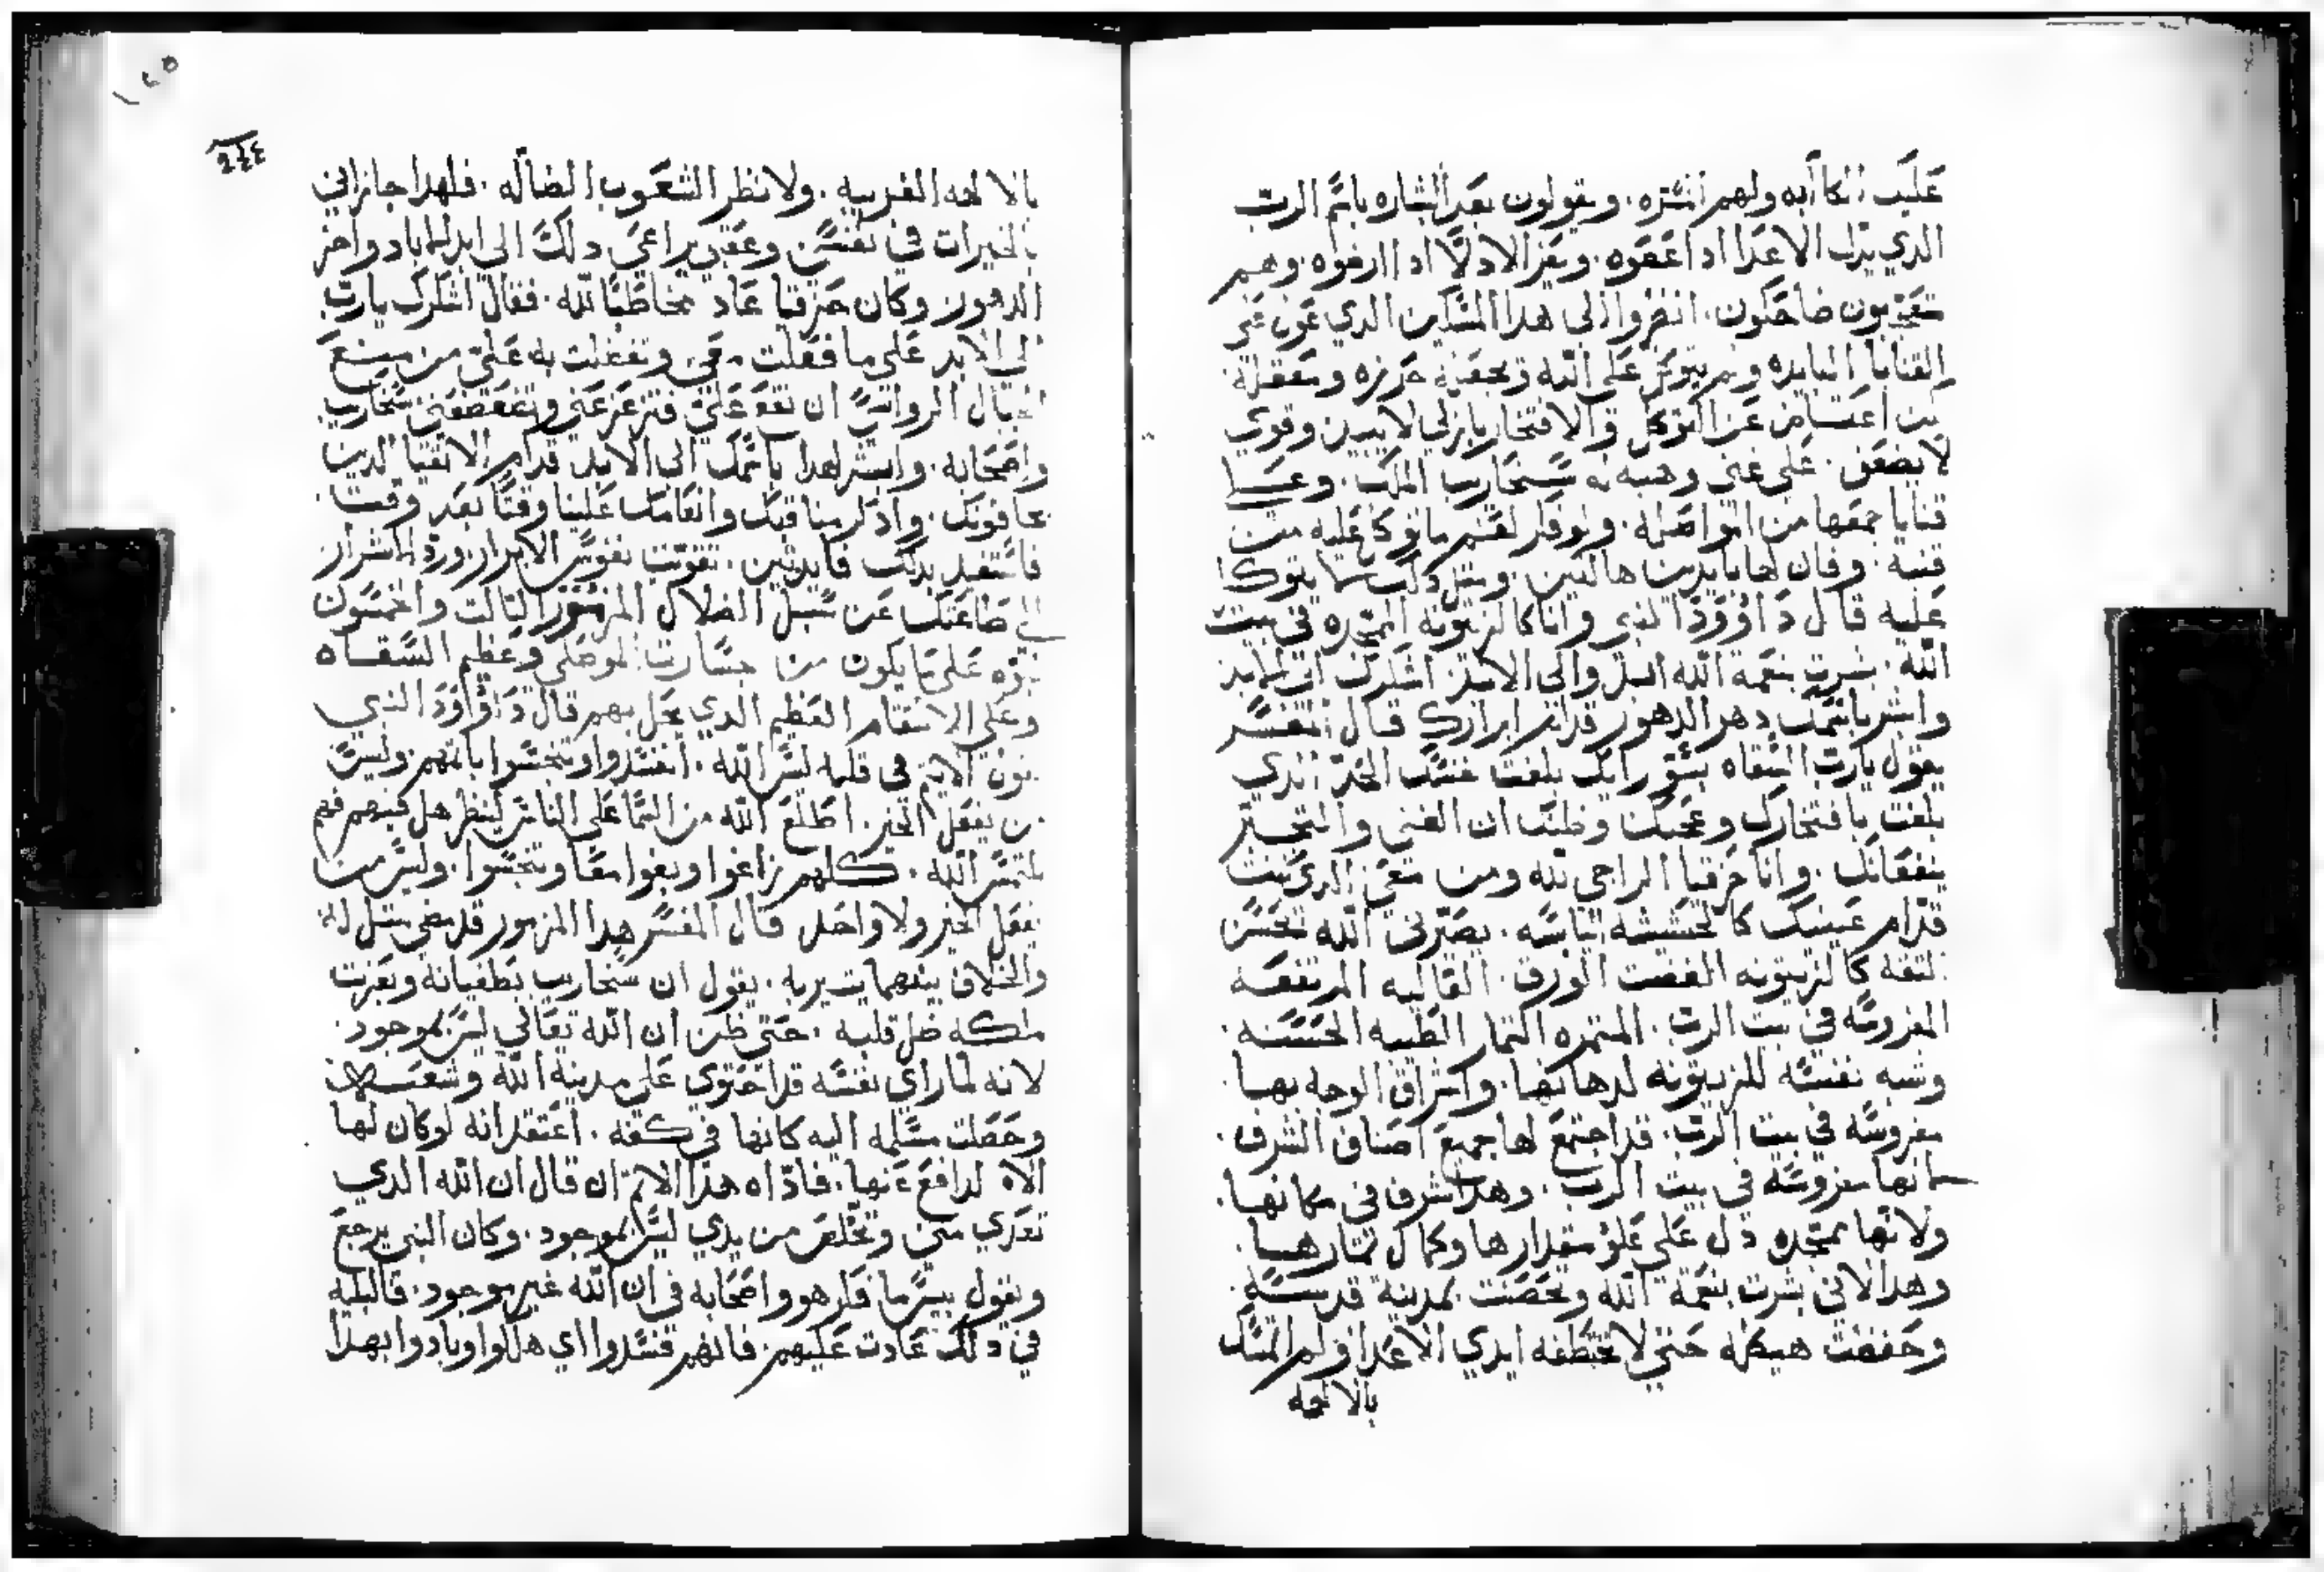 عليك الكاآبه ولهم المسره. ويقولون بعد البشاره باسم الرب
الدي يترك الاعدا ادا عقوه. ويعز الادلا ادا ارضوه. وهم
ضاحكون. انضروا الى هدا المسكين الدي عون على
القنايا البايده ولم يتوكل على الله
من اعتاض عن التوكل والافتخار بازلي لا يبيد وقوي
لا يضعف. على غنى وهبه له سنحاريب الملك. وعلى
قنايا جمعها من المواصله.
قنيه. وفان لها بايدين هالكين. ومثل دلك لا يتوكا
عليه قال داوود النبي وانا كالزيتونه المتمره في بيت
الله. بشرت بنعمة الله الى الابد والى الابد اشكرك الى الابد
وابشر باسمك دهر الدهور قدام ابرارك قال المفسر
يقول يارب الشقاه بسو رايك بلغت نفسك الحد الدي
بلغت بافتخارك وعجبك وظنك ان الغنى والتجبر
ينفعانك. وانا حزقيا الراجي لله ومن معي الدي
قدام عينيك كالحشيشه اليابسه. يصيرني الله بحسن
الثقه كالزيتونه الغضت الورق. العاليه المرتفعه
المغروسه في بيت الرب. المتمره التمار الطيبه الحسنه.
وشبه نفسه للزيتونه لدهانتها. واشراق الوجه بها.
مغروسه في بيت الرب. قد اجتمع لها جميع اصناف الشرف.
لانها مغروسه في بيت الرب. وهدا شرف في مكانها.
ولانها متمره دل على علو مقدارها وكمال تمارها.
وهدا لاني بشرت بنعمة الله وتحصنت بمدينة قدسه.
وحفضت هيكله حتى لا تخطفه ايدي الاعدا ولم اتمسك
بالالهه
١٢٥
بالالهه الغريبه. ولا نظر الشعوب الضاله. فلهدا جازاني
بالخيرات في نفسي وعقبي يراعي دلك الى ابد الاباد واخر
الدهور وكان حزقيا عاد مخاطبا لله. فقال اشكرك يارب
الى الابد على ما فعلت معي وتفضلت به علي من منع
الجبال الرواسي ان تقع علي فتزعزعني وتضعضعني سنحاريب
واصحابه. وابشر لهدا باسمك الى الابد قدام الاتقيا الدين
يخافونك. وادكر مناقبك وانعامك علينا وقتا بعد وقت.
فاستفيد بدلك فايدتين. تقويت نفوس الابرار. ورد الاشرار
الى طاعتك عن سبل الضلال المزمور التالت والخمسون
نبوه على ما يكون من جسارت الموصلي وعظم الشقاه
وعلى الانتقام العظيم الدي يحل بهم قال داوود النبي
يقول الاتيم في قلبه ليس الله. افسدوا وتنجسوا باتمهم وليس
من يفعل الخير. اطلع الله من السما على الناس لينظر هل فيهم فهم
يلتمس الله. كلهم زاغوا وبغوا معا وتنجسوا. وليس من
يفعل الخير ولا واحد قال المفسر هدا المزمور قد مضى مثل له
والخلاف بينهما يتدبر به. يقول ان سنحاريب بطغيانه وبعزت
ملكه ضل قلبه. حتى ظن ان الله تعالى ليس بموجود.
لانه لما راي نفسه قد احتوى على مدينة الله وشعبه
وحصلت مسلمه اليه كانها في كفه. اعتقد انه لو كان لها
الاه لدافع عنها. فاداه هدا الاتم ان قال ان الله الدي
تعدي مني وتخلص من يدي ليس بموجود. وكان النبي يرجع
ويقول بيس ما فكر هو واصحابه في ان الله غير موجود. فالبليه
في دلك عادت عليهم. فانهم فسدوا اي هلكوا وبادوا بهدا